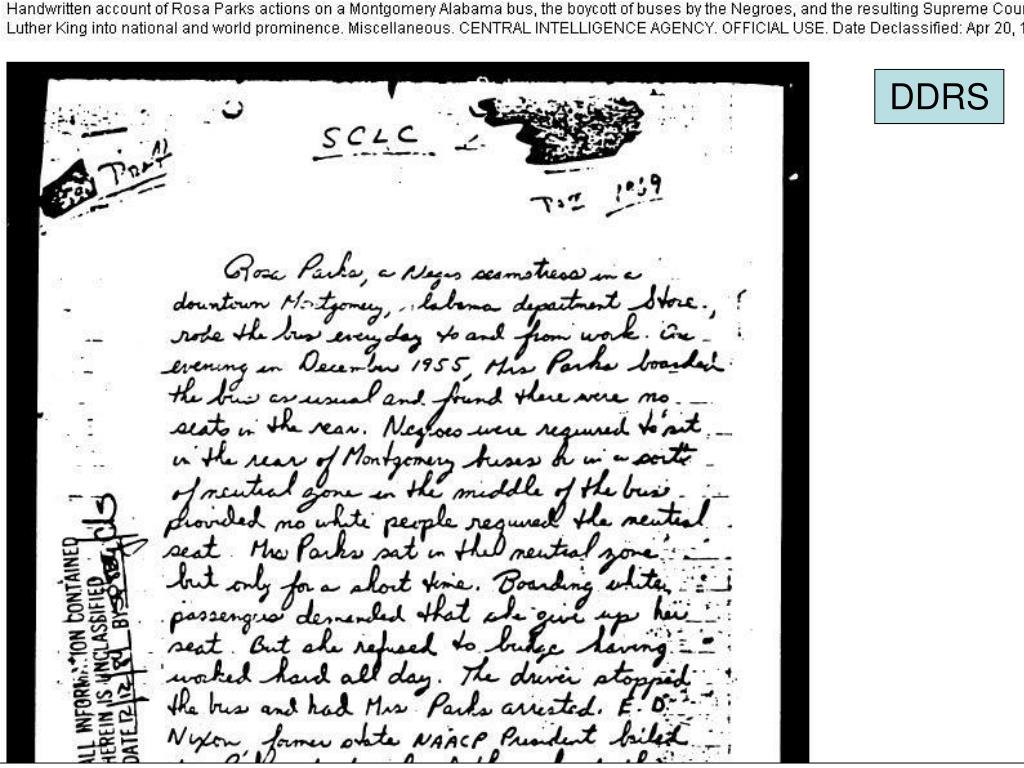 Handwritten account of Rosa Parks actions on a Montgomery Alabama bus, the boycott of buses by the Negroes, and the resulting Supreme Cou
Luther King into national and world prominence. Miscellaneous. CENTRAL INTELLIGENCE AGENCY. OFFICIAL USE. Date Declassified: Apr 20, 1
DDRS
SCLC
1969
Rosa Parks, a Negro seamstress in a
downtown Montgomery, labama department Store,
rode the bus everyday to and from work. One
evening in December 1955, Mrs Parks boarded
the bus as usual and found there were no
seats in the rear. Negroes were required to sit
in the rear of Montgomery buses or in a sort
of neutral zone in the middle of the bus
provided no white people required the neutral
seat. Mrs Parks sat in the neutral zone
but only for a short time. Boarding white
passengers demanded that she give up her
seat. But she refused to budge having
worked hard all day. The driver stopped
the bus and had Mrs Parks arrested. E. D.
Nixon, former state NAACP President bailed
ALL INFORMATION CONTAINED
HEREIN IS UNCLASSIFIED
DATE 12/12/84 BY